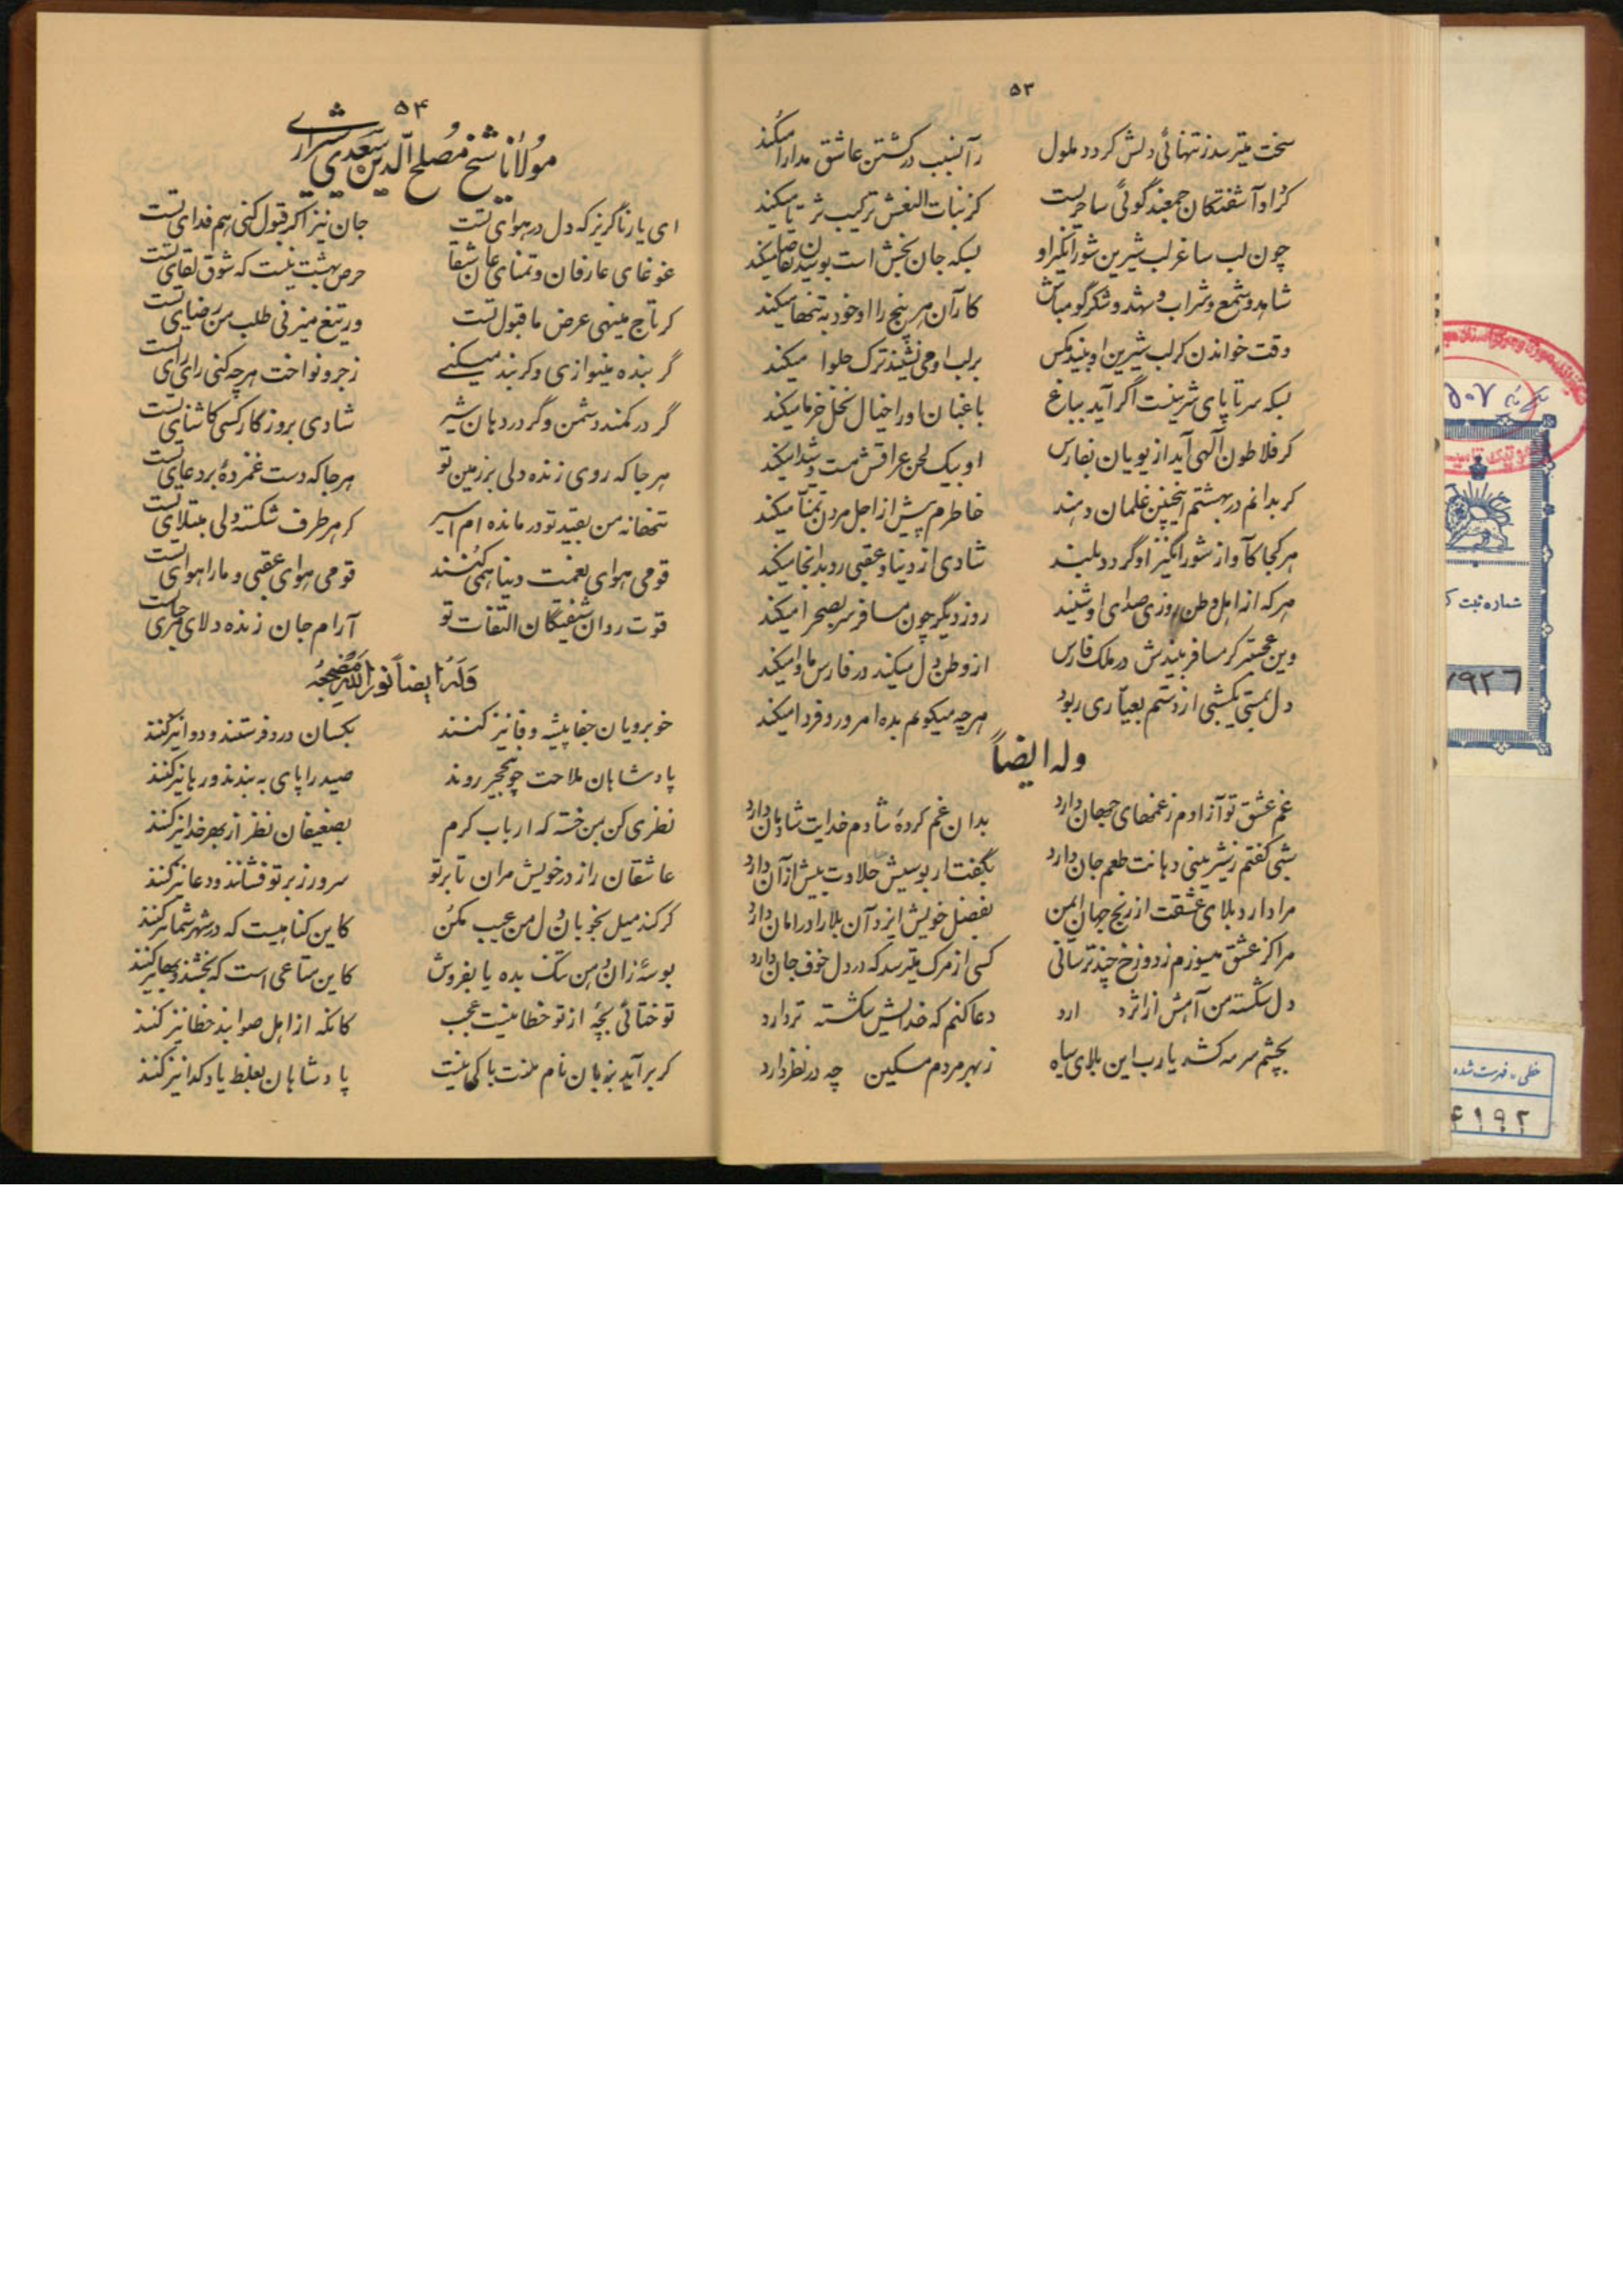 ۵۳
سخت میترسد ز تنهائی دلش گردد ملول
زآنسبب در کشتن عاشق مدارا میکند
کز نبات النعش ترکیب ثریا میکند
چون لب ساغر لب شیرین شورانگیز او
بسکه جان بخش است بوسیدن تقاضا میکند
شاهد و شمع و شراب و شهد و شکر گو مباش
کار آن هر پنج را او خود به تنها میکند
وقت خواندن کر لب شیرین او بیند مکس
بر لب او می نشیند ترک حلوا میکند
بسکه سر تا پای شیرینست اگر آید بباغ
باغبان او را خیال نخل خرما میکند
کر فلاطون آلهی آید از یونان بفارس
او بیک لحن عراقش مست و شیدا میکند
کر بدانم در بهشتم اینچنین غلمان دهند
خاطرم پیش از اجل مردن تمنا میکند
هر کجا کآواز شورانگیز او گردد بلند
شادی از دنیا و عقبی رو بدانجا میکند
هر که از اهل وطن روزی صدای او شنید
روز دیگر چون مسافر سر بصحرا میکند
وین عجبتر کر مسافر بیندش در ملک فارس
از وطن دل میکند در فارس ماوا میکند
دل بمستی یکشبی از دستم بعیاری ربود
هر چه میکویم بده امروز و فردا میکند
وله ایضاً
غم عشق تو آزادم ز غمهای جهان دارد
بدان غم کردهٔ شادم خدایت شادمان دارد
شبی گفتم ز شیرینی دهانت طعم جان دارد
بگفتار بوسیش حلاوت بیش از آن دارد
مرا دارد بلای عشقت از رنج جهان ایمن
بفضل خویش ایزد آن بلا را در امان دارد
مرا کز عشق میسوزم ز دوزخ چند ترسانی
کسی از مرک میترسد که در دل خوف جان دارد
دل شکسته من آهش از اثر دارد
دعا کنم که خدایش شکسته تر دارد
بچشم سرمه کشد یارب این بلای سیاه
ز بهر مردم مسکین چه در نظر دارد
۵۴
مولانا شیخ مصلح الدین سعدی شیرازی
ای یار ناگزیر که دل در هوای تست
جان نیز اگر قبول کنی هم فدای تست
غوغای عارفان و تمنای عاشقان
حرص بهشت نیست که شوق لقای تست
کر تاج مینهی عرض ما قبول تست
ور تیغ میزنی طلب من رضای تست
گر بنده مینوازی و کر بند میکنی
زجر و نواخت هر چه کنی رای رای تست
گر در کمند دشمن و گر در دهان شیر
شادی بروزگار کسی کاشنای تست
هر جا که روی زنده دلی بر زمین تو
هر جا که دست غمزدهٔ بر دعای تست
تنها نه من بقید تو درمانده ام اسیر
کز هر طرف شکسته دلی مبتلای تست
قومی هوای نعمت دنیا همی کنند
قومی هوای عقبی و ما را هوای تست
قوت روان شیفتگان التفات تو
آرام جان زنده دلان
وَلَهُ ایضاً نَوَّرَ اللهُ مَضْجَعَهُ
خوبرویان جفا پیشه وفا نیز کنند
بکسان درد فرستند و دوا نیز کنند
پادشاهان ملاحت چو بنخجیر روند
صید را پای به بندند و رها نیز کنند
نظری کن بمن خسته که ارباب کرم
بضعیفان نظر از بهر خدا نیز کنند
عاشقان را ز در خویش مران تا بر تو
سر و زر بر تو فشانند و دعا نیز کنند
کر کند میل بخوبان دل من عیب مکن
کاین کناهیست که در شهر شما نیز کنند
بوسهٔ زان دهن تنک بده یا بفروش
کاین متاعی است که بخشند و بها نیز کنند
تو ختائی بچهٔ از تو خطا نیست عجب
کانکه از اهل صوابند خطا نیز کنند
کر برآید بزبان نام منت باکی نیست
پادشاهان بغلط یاد کدا نیز کنند
شماره ثبت ک
۷۹۲۶
خطی - فهرست شده
۴۱۹۲